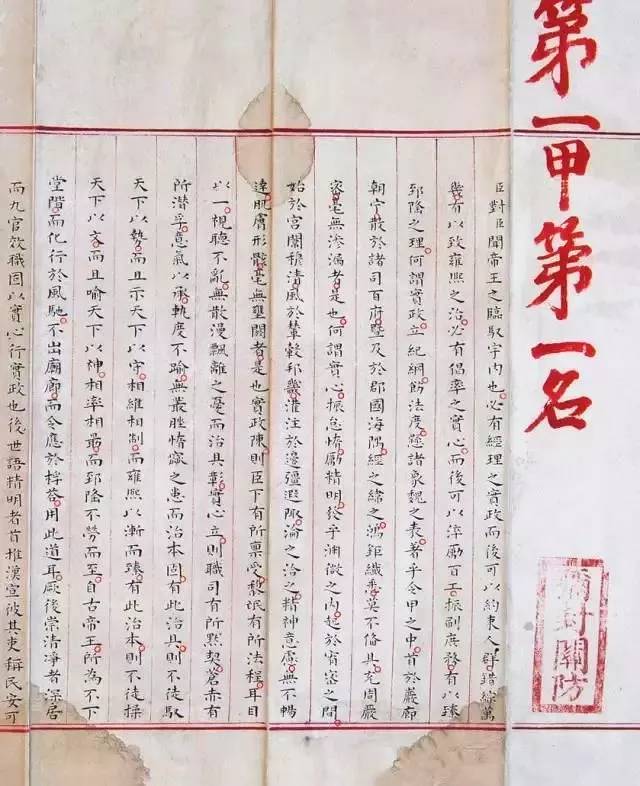 第一甲第一名
彌封關防
臣對臣聞帝王之臨馭宇內也必有經理之實政而後可以約束人群錯綜萬
幾有以致雍熙之治必有倡率之實心而後可以淬勵百工振刷庶務有以臻
郅隆之理何謂實政立紀綱飭法度懸諸象魏之表著乎令甲之中首於巖廊
朝宁散於諸司百府暨及於郡國海隅經之緯之鴻鉅纖悉莫不備具充周嚴
密毫無滲漏者是也何謂實心振怠惰勵精明發乎淵微之內起於宥密之間
始於宮闈穆清風於輦轂邦畿灌注於邊疆遐陬淪之洽之精神意慮無不暢
達肌膚形骸毫無壅閼者是也實政陳則臣下有所稟受黎氓有所法程耳目
以一視聽不亂無散漫飄離之憂而治具彰實心立則職司有所默契蒼赤有
所潛孚意氣以承軌度不踰無叢脞惰窳之患而治本固有此治具則不徒馭
天下以勢而且示天下以守相維相制而雍熙以漸而臻有此治本則不徒操
天下以文而且喻天下以神相率相勗而郅隆不勞而至自古帝王所為不下
堂階而化行於風馳不出廟廊而令應於桴答用此道耳厥後崇清淨者深居
而九官效職固以實心行實政也後世語精明者首推漢宣彼其吏稱民安可